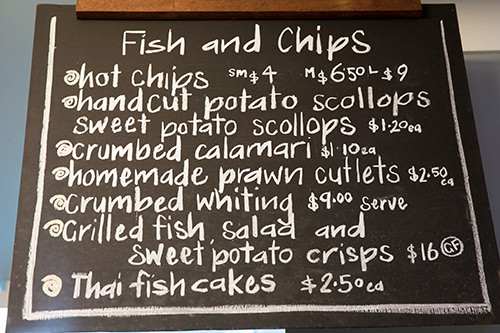 Fish and Chips
hot chips SM $4 M $6.50 L $9
handcut potato scollops
sweet potato scollops $1.20ea
crumbed calamari $1.10ea
homemade prawn cutlets $2.50 ea
Crumbed whiting $9.00 serve
Grilled fish, salad and
sweet potato crisps $16 GF
Thai fish cakes $2.50ea